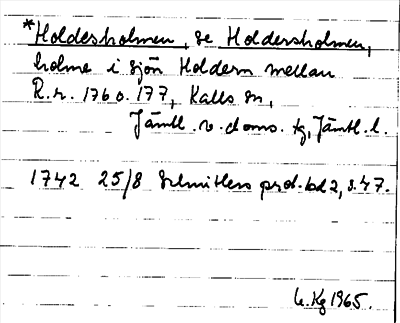 *Holdesholmen, se Holdersholmen,
holme i sjön Holdern mellan
R.r. 176 o. 177, Kalls sn,
Jämtl. v. doms. tg, Jämtl. l.
1742 25/8 Schnitlers prot. bd 2, s. 47.
Kg 1965.